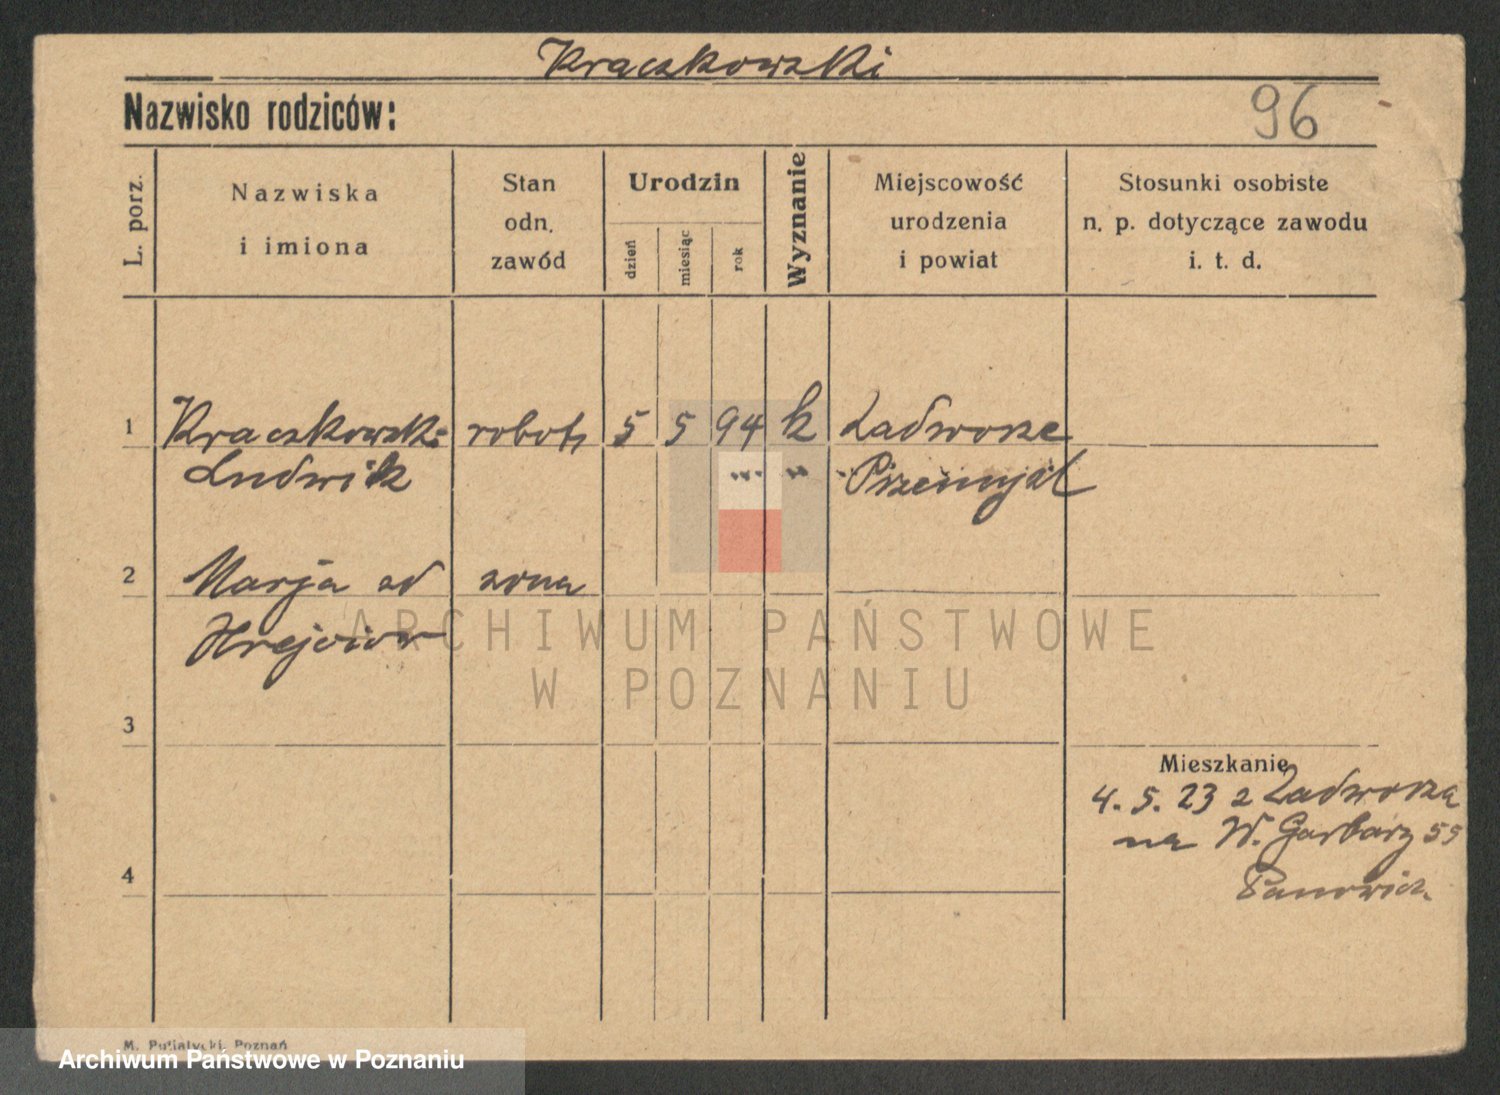 Kraczkowski
Nazwisko rodziców:
96
L. porz.
Nazwiska
i imiona
Stan
odn.
zawód
Urodzin
dzień
miesiąc
rok
Wyznanie
Miejscowość
urodzenia
i powiat
Stosunki osobiste
n. p. dotyczące zawodu
i. t. d.
1 Kraczkowski robotn 5 5 94 k
Ludwik
2 Marja zd zona
3
Mieszkanie
4. 5. 23 z
na W. Garbary 55
4
ARCHIWUM PAŃSTWOWE
W POZNANIU
M. Putiatycki, Poznań
Archiwum Państwowe w Poznaniu